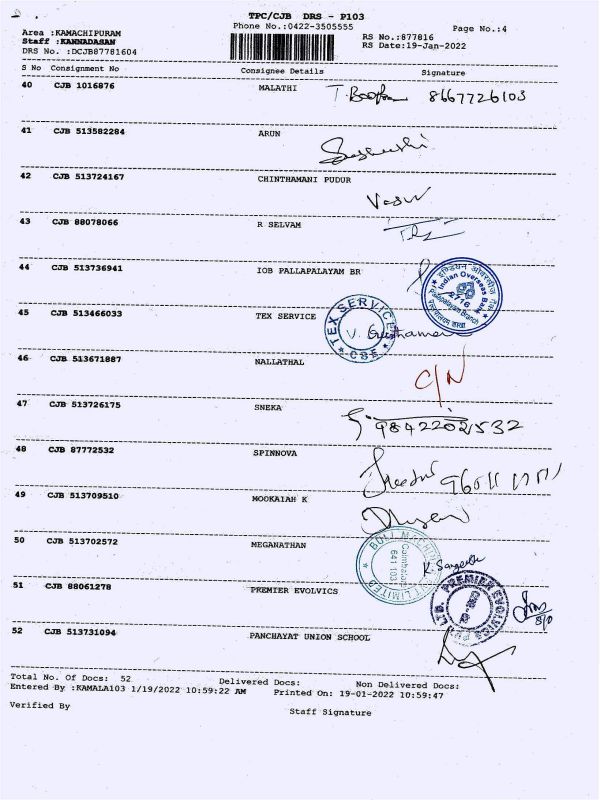 TPC/CJB DRS - P103
Phone No.:0422-3505555
Page No.:4
Area :KAMACHIPURAM
Staff :KANNADASAN
DRS No. :DCJB87781604
RS No.:877816
RS Date:19-Jan-2022
S No Consignment No Consignee Details Signature
40 CJB 1016876 MALATHI 8667726103
41 CJB 513582284 ARUN
42 CJB 513724167 CHINTHAMANI PUDUR
Vasu
43 CJB 88078066 R SELVAM
44 CJB 513736941 IOB PALLAPALAYAM BR
इण्डियन ओवरसीज बैंक
Indian Overseas Bank
2716
45 CJB 513466033 TEX SERVICE
TEX SERVICE
CBE
46 CJB 513671887 NALLATHAL
C/N
47 CJB 513726175 SNEKA
9842202532
48 CJB 87772532 SPINNOVA
49 CJB 513709510 MOOKAIAH K
50 CJB 513702572 MEGANATHAN
Coimbatore
641 103
LIMITED
51 CJB 88061278 PREMIER EVOLVICS
PREMIER EVOLVICS PVT. LTD.
52 CJB 513731094 PANCHAYAT UNION SCHOOL
Total No. Of Docs: 52 Delivered Docs: Non Delivered Docs:
Entered By :KAMALA103 1/19/2022 10:59:22 AM Printed On: 19-01-2022 10:59:47
Verified By Staff Signature